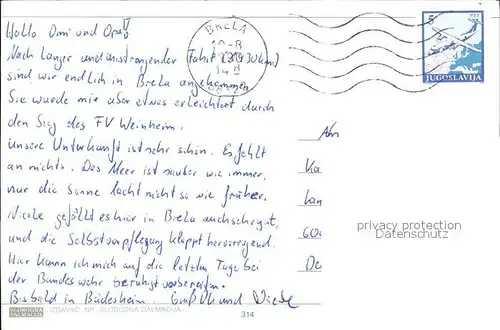 Hallo Omi und Opa!
BRELA
5
JUGOSLAVIJA
Nach langer und anstrengender Fahrt (
sind wir endlich in Brela angekommen
Sie wurde mir aber etwas erleichtert durch
den Sieg des FV Weinheim.
unsere Unterkunft ist sehr schön. Es fehlt
an nichts. Das Meer ist sauber wie immer,
nur die Sonne lacht nicht so wie früher.
Nicole gefällt es hier in Brela auch sehr gut,
und die Selbstverpflegung klappt hervorragend.
Hier kann ich mich auf die letzten Tage bei
der Bundeswehr beruhigt vorbereiten.
Bis bald in Büdesheim. Gruß und Nicole
An
privacy protection
Datenschutz
SLOBODNA DALMACIJA
IZDAVAČ: NP „SLOBODNA DALMACIJA"
314